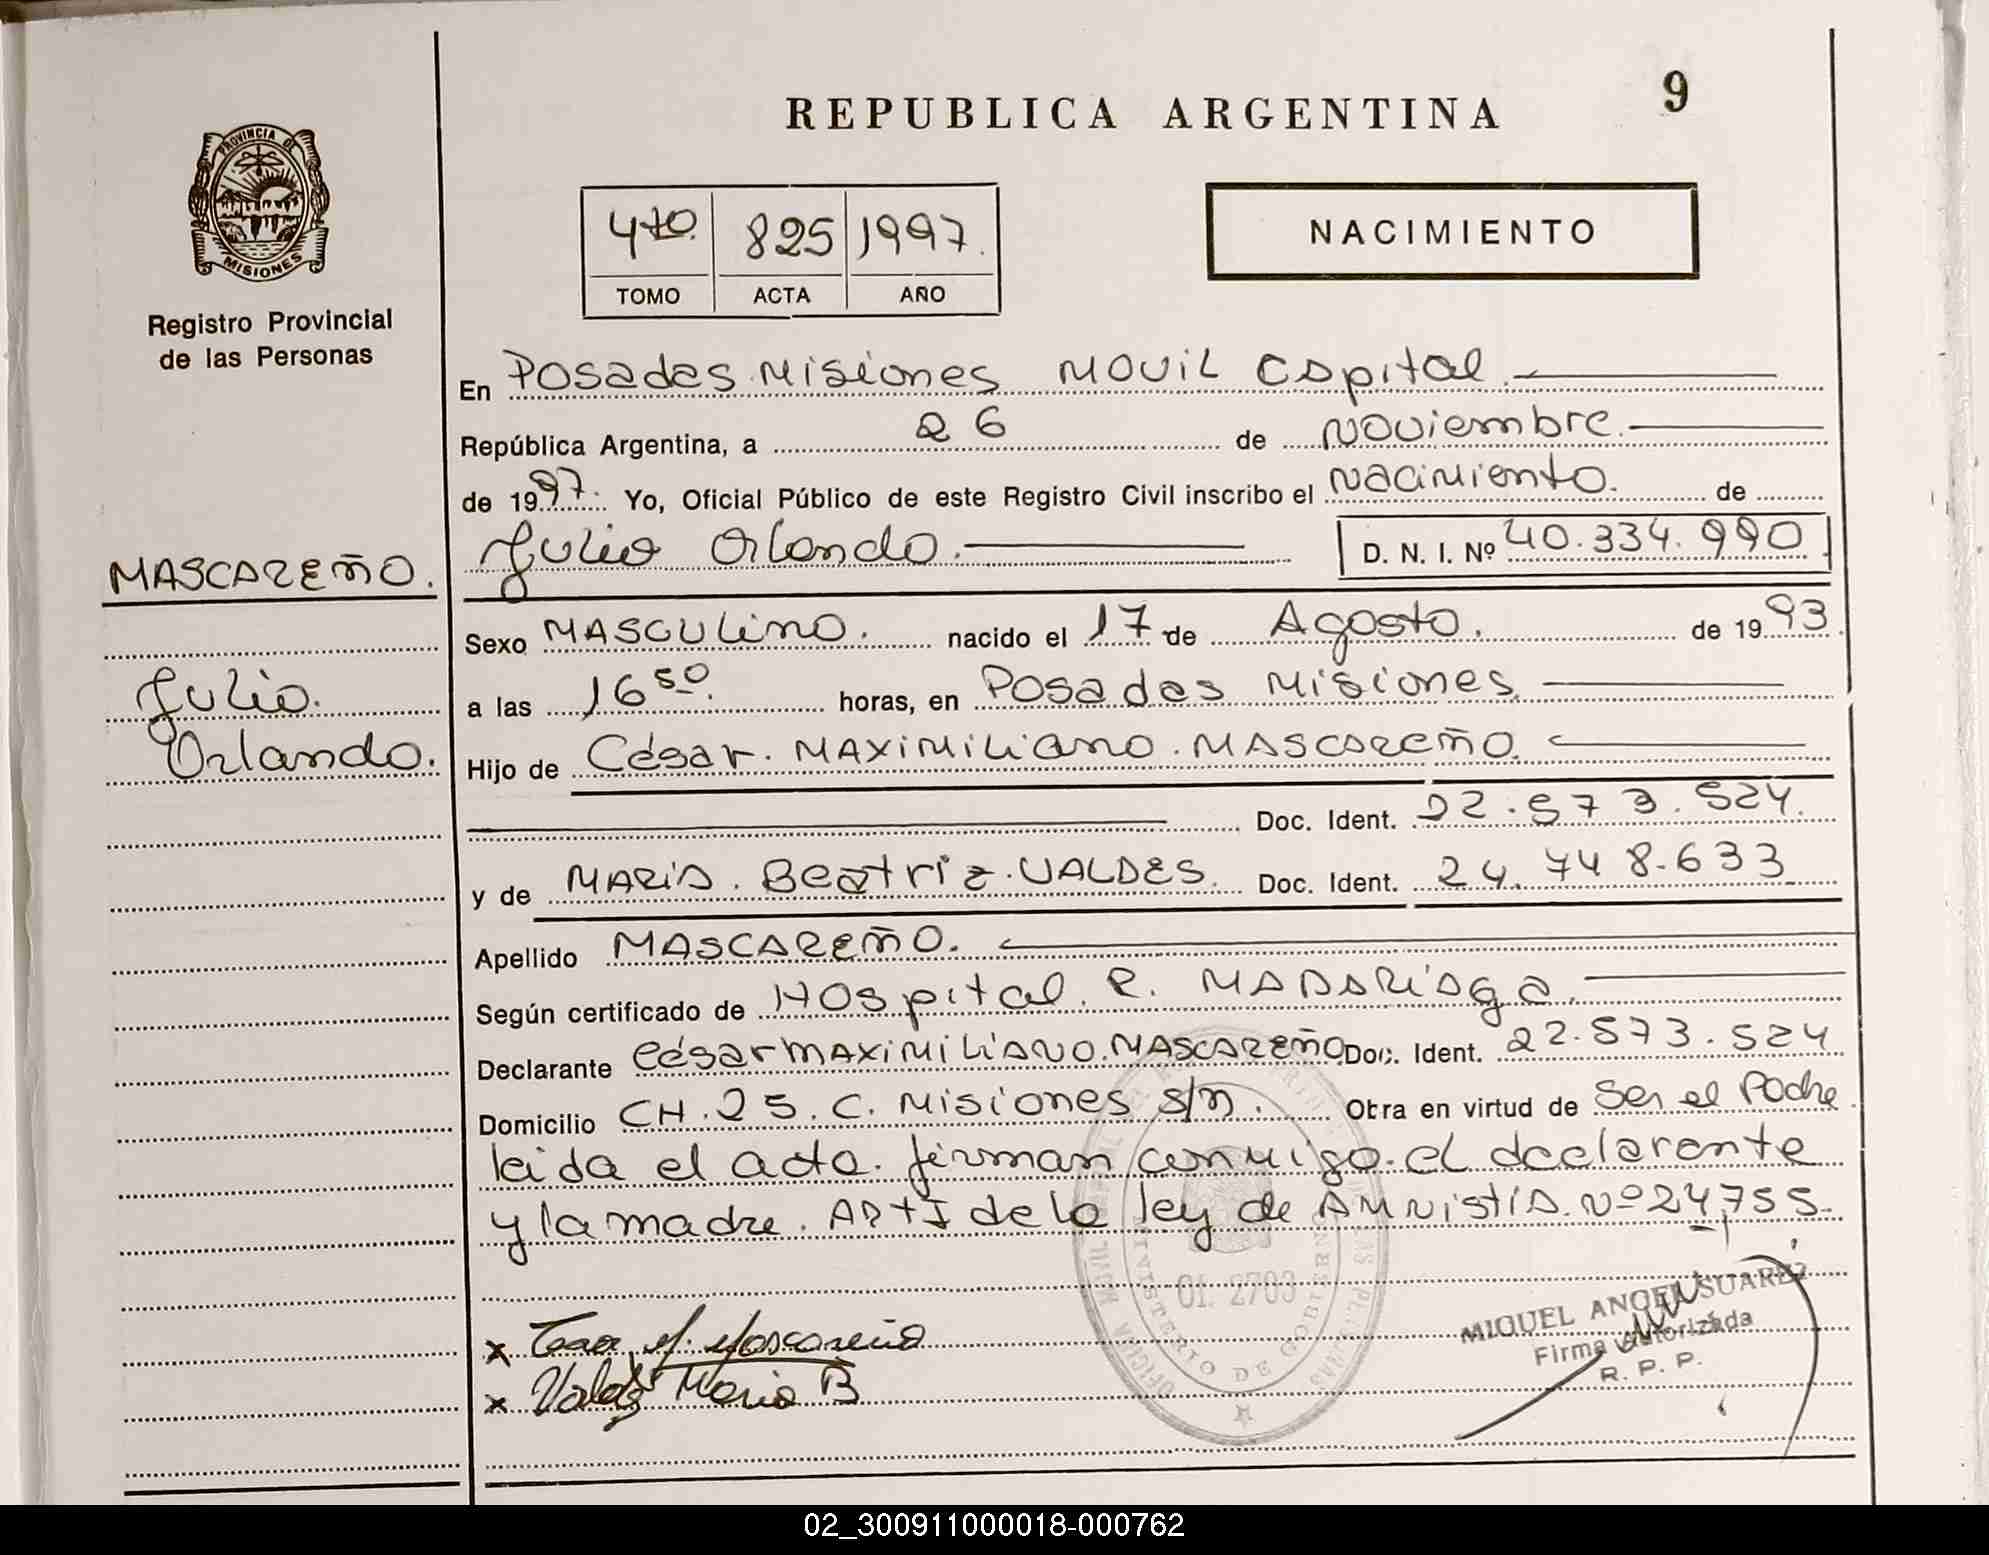 REPUBLICA ARGENTINA
9
PROVINCIA DE
MISIONES
Registro Provincial
de las Personas
470 825 1997.
TOMO ACTA AÑO
NACIMIENTO
En Posadas Misiones Movil Capital.
República Argentina, a 26 de Noviembre.
de 1997. Yo, Oficial Público de este Registro Civil inscribo el Nacimiento. de
MASCAREÑO.
Julio Orlando. D. N. I. Nº 40.334.990
Sexo MASCULINO. nacido el 17 de Agosto. de 1993
Julio.
a las 16 50. horas, en Posadas Misiones
Orlando.
Hijo de César. Maximiliano. Mascareño.
Doc. Ident. 22.573.524.
y de María. Beatriz. VALDES. Doc. Ident. 24.748.633
Apellido MASCAREÑO.
Según certificado de Hospital. R. MADARIAGA.
Declarante César Maximiliano. Mascareño Doc. Ident. 22.573.524
Domicilio CH. 25. C. Misiones s/n. Obra en virtud de Ser el Padre
leida el acta. firman conmigo. el declarante
y la madre. Art I de la ley de AMNistíA. Nº 24,755.
01. 2703
MINISTERIO DE GOBIERNO
MIGUEL ANGEL SUAREZ
Firma Autorizada
R. P. P.
x Cesar M. Mascareño
x Valdes Maria B
02_300911000018-000762